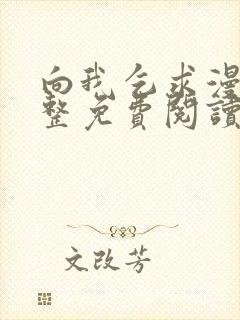 向我乞求漫
整免費閱讀
文改芳